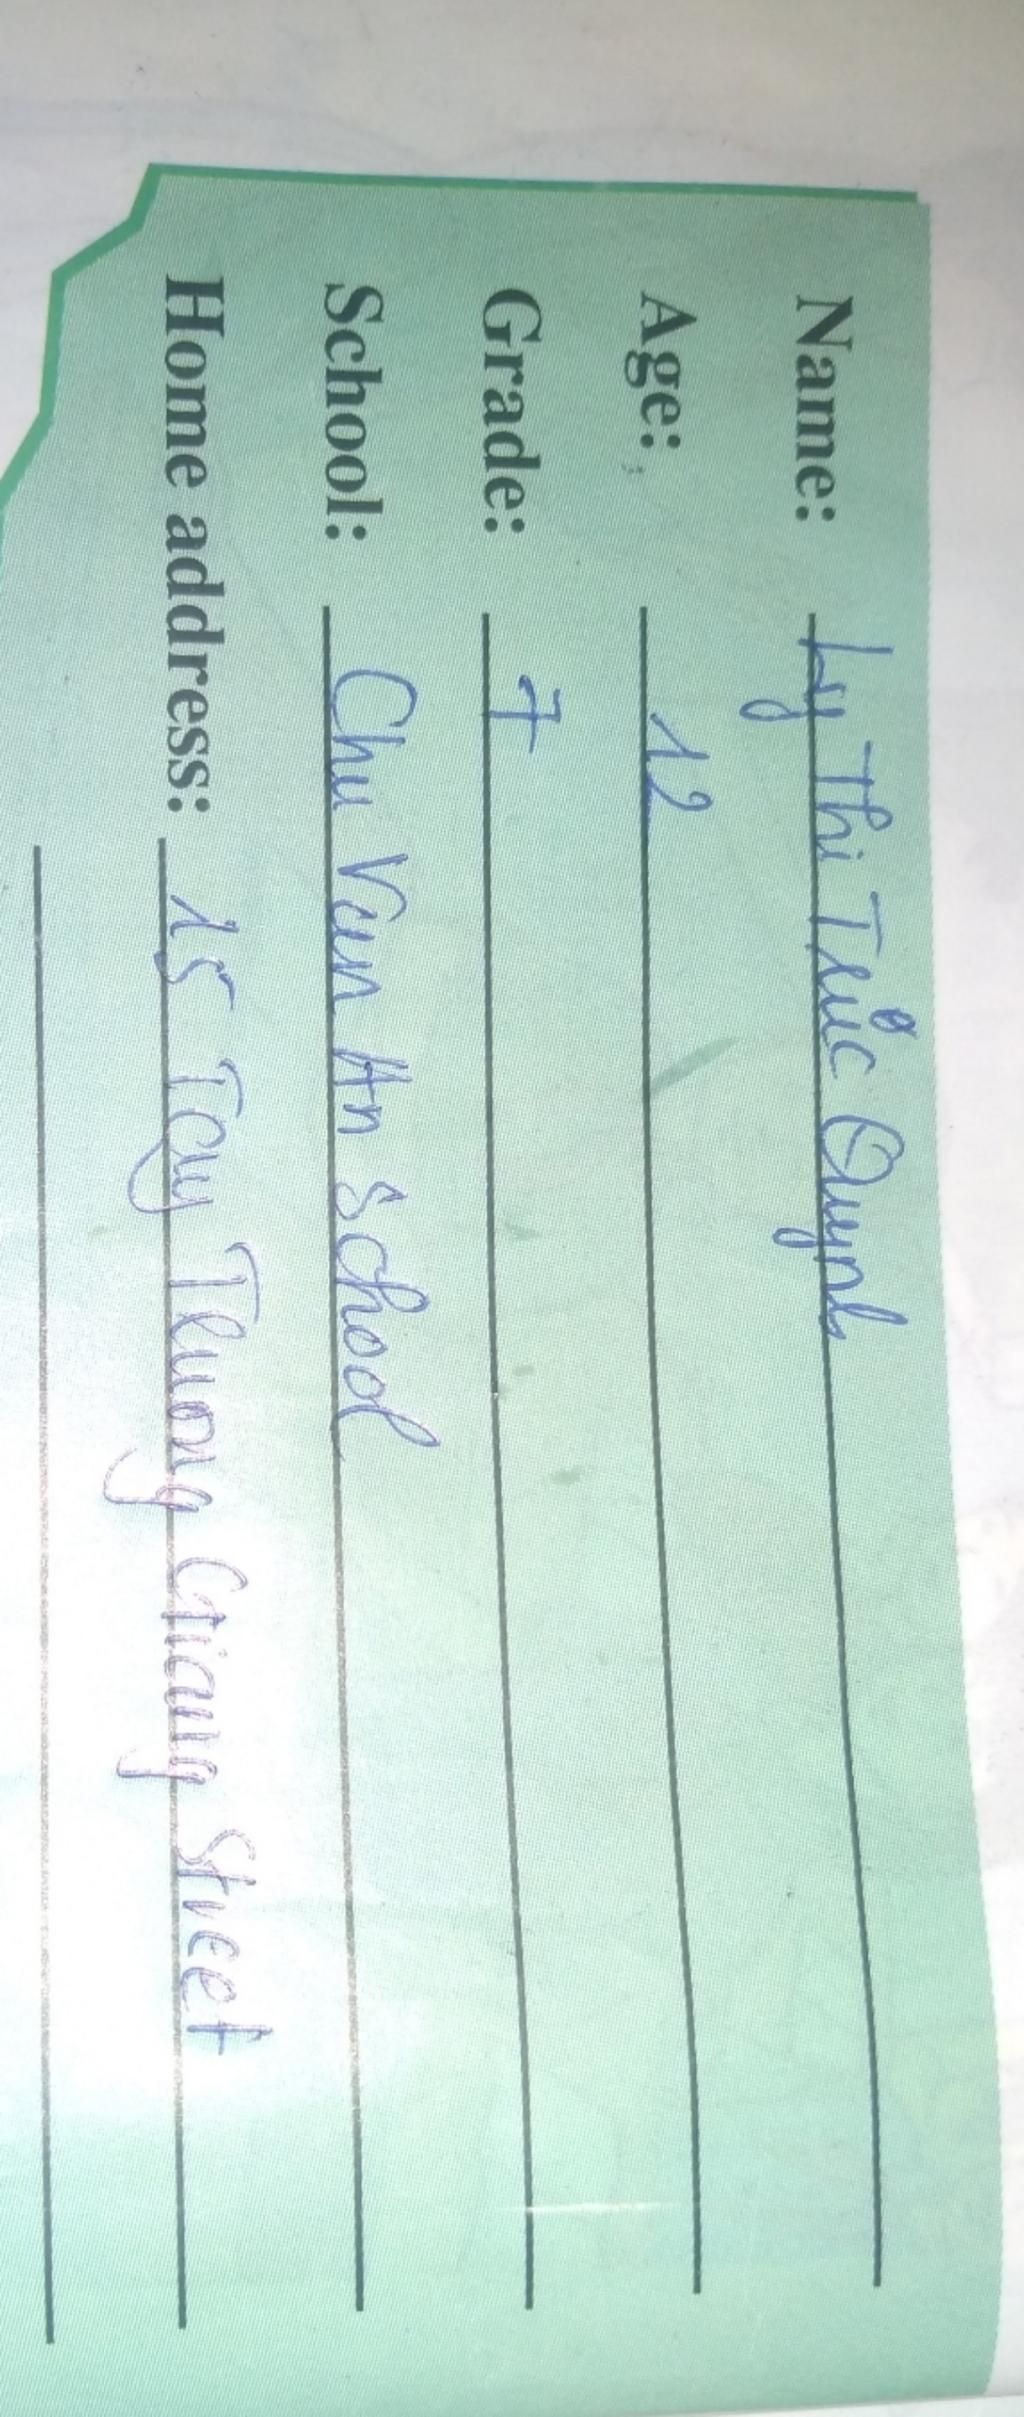 Name: Ly Thi Truc Quynh
Age: 12
Grade: 7
School: Chu Van An School
Home address: 15 Tay Truong Giang Street